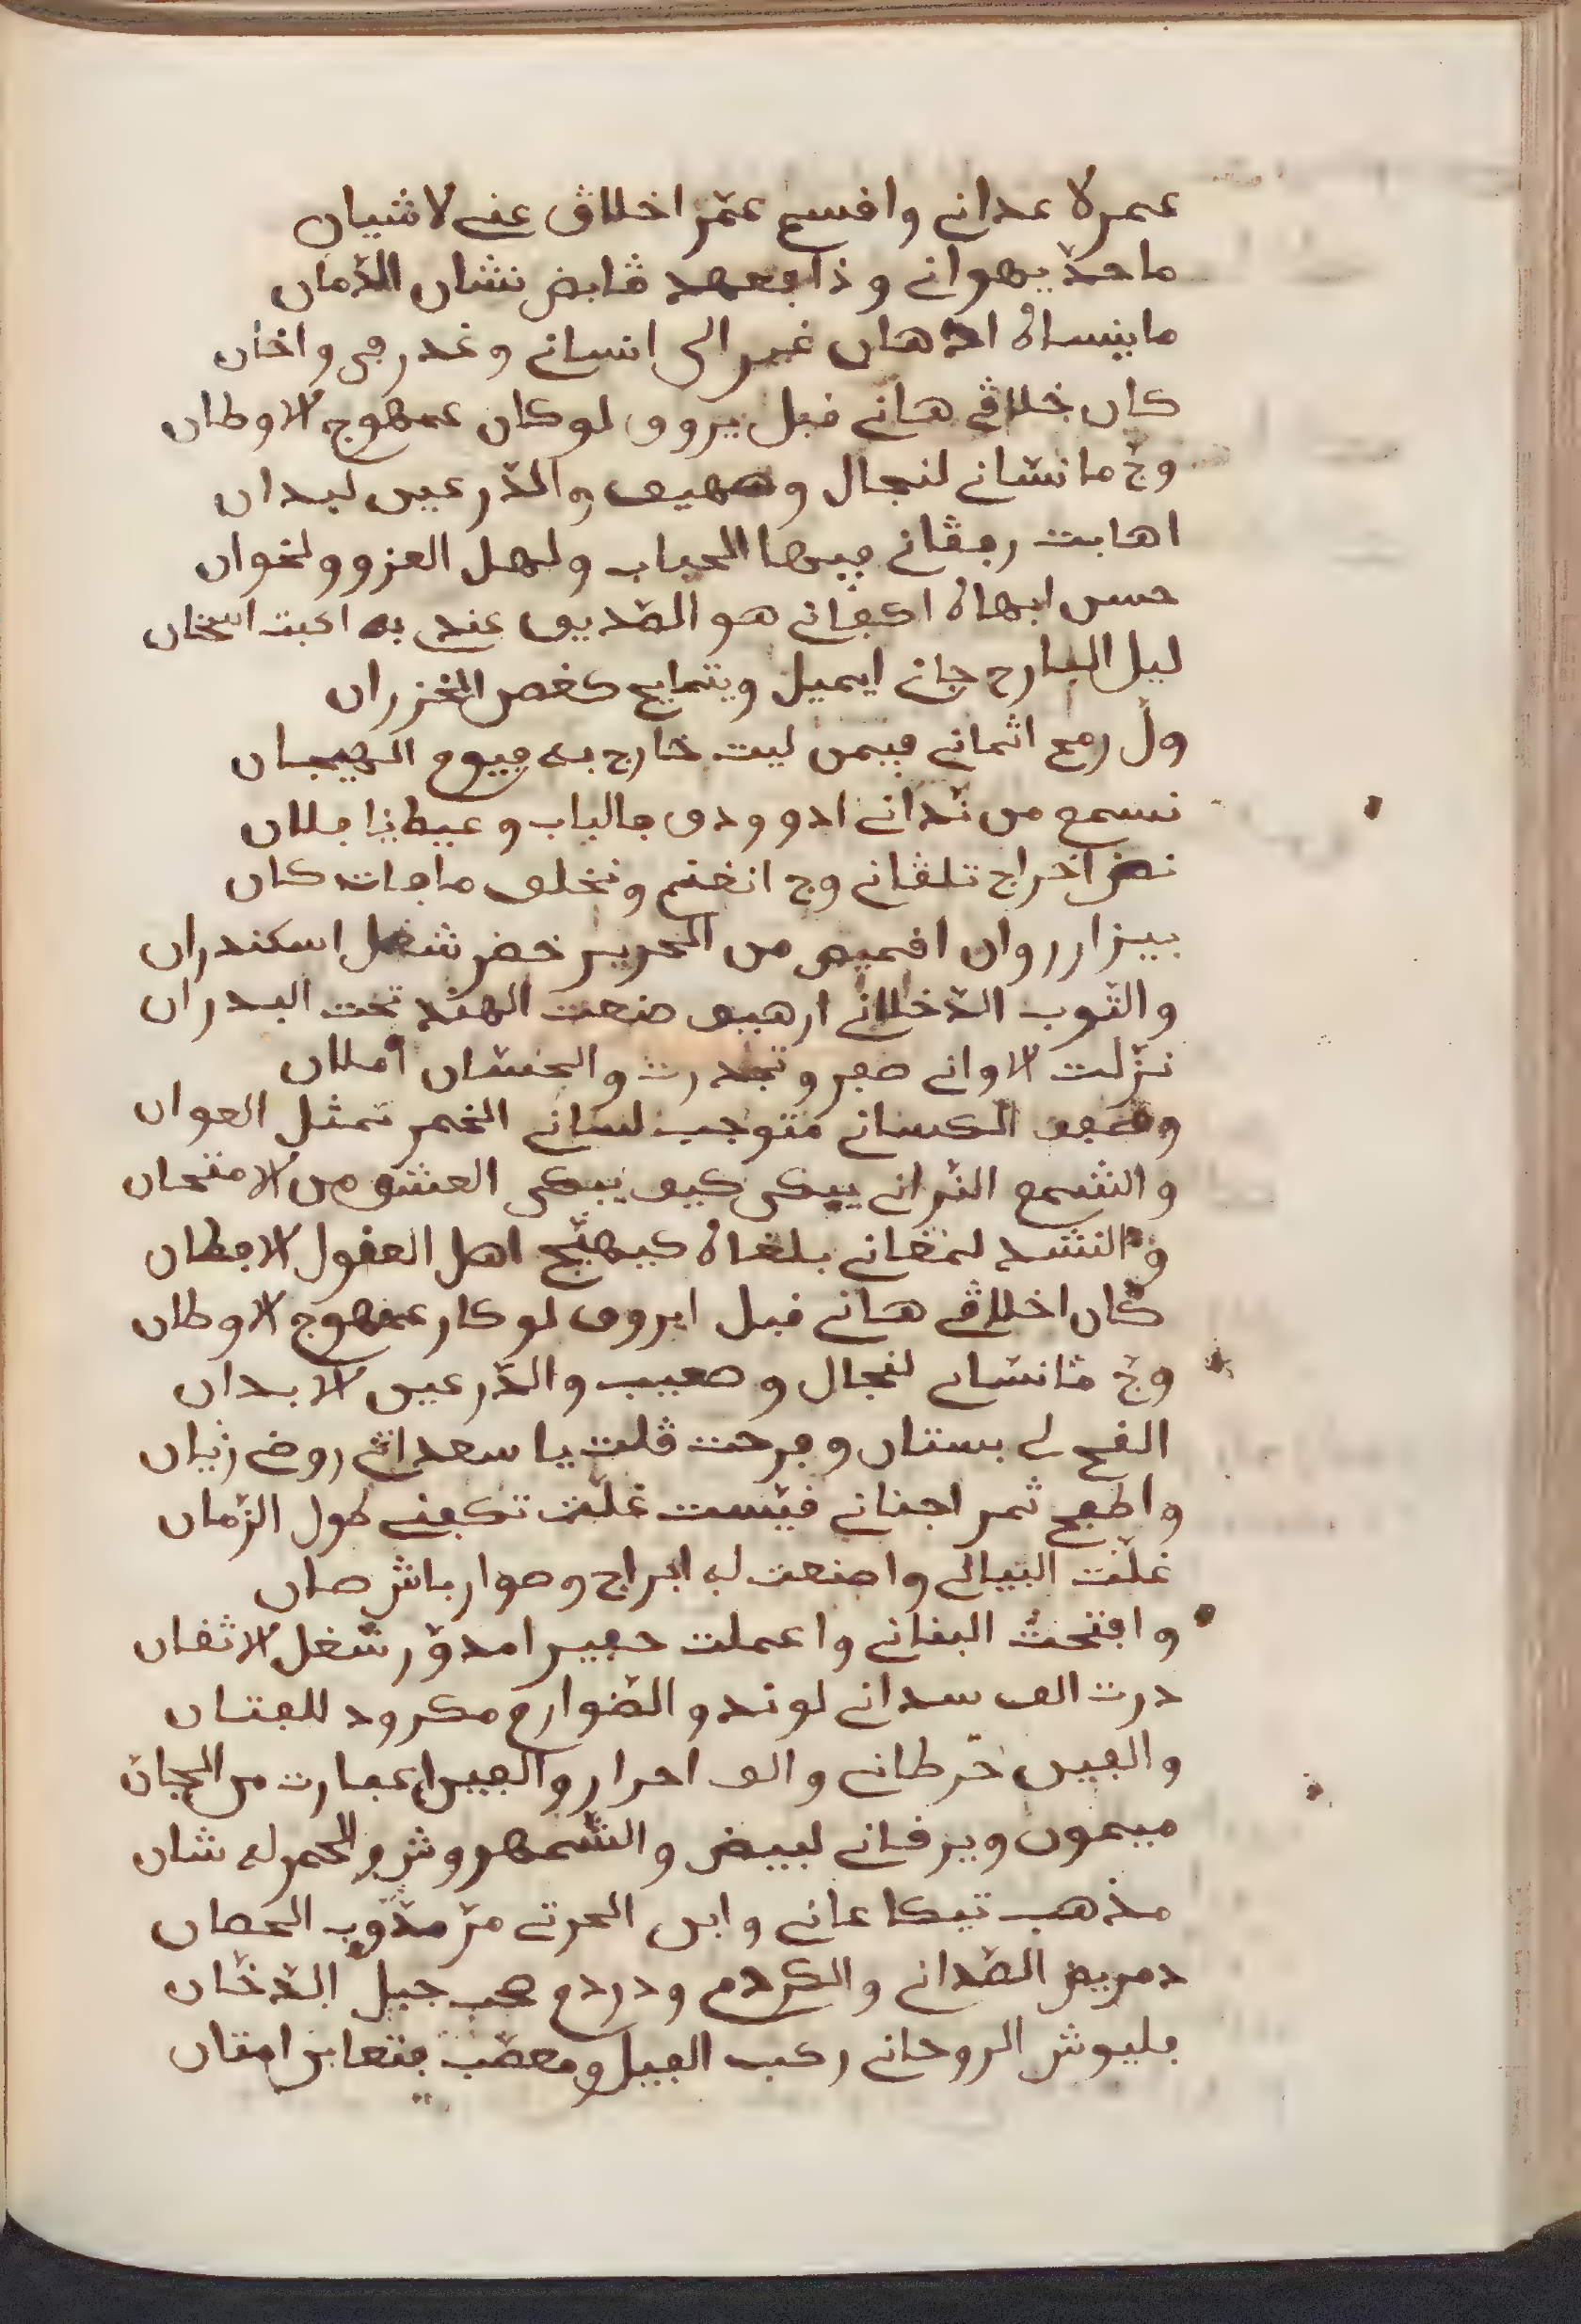 عمرلا عدانے وافسم عمّر اخلاڧ عنے لاشيان
ما حدّ يهوانے و ذا بعهد ڧابض نشان الدّمان
ماينساه اذهان غير الى انسانے وغدر بى واخان
كان خلاڧے هانے فبل يروو لوكان عمهوج الاوطان
وجّ مانسّانے لنجال وصهيب والدّرعين لبدان
اهابت ربڧانے بيها الحباب ولهل العزو ولخوان
حسن ابهاه اكبانے هو الصّديق عند به اثبت اسخان
ليل البارح جانے ايميل ويتمايح كغصن الخزران
ولّ رمح اثمانے بيمن ليت خارج به بيوم الهيجان
نسمع من ندّانے ادو ودڧ بالباب وعيطيا بلان
نض اخراج تلڧانے وج انغنم ونخلف مابات كان
بيزار روان افميص من الحرير خضر شغل اسكندران
والثّوب الدّخلانے ارهيب صنعت الهند تحت البدران
نزّلت الاوانے صبر وتجدرت والخشان املان
وصبب الكسانے متوجب لسانے الخمر تمثل العوان
والشّمع النّرانے يبكى كيب يبكى العشو من الامتحان
والنشد لمغانے بلغاه كيهيّج اهل العفول الابطان
كان اخلاڧے هانے فبل ايروو لوكار عمهوج الاوطان
وجّ مانسّانے لنجال وصعيب والدّرعين الابدان
الفح لے بستان وبرحت ڧلت يا سعدانے روض زيان
واطبح ثمر اجنانے فيّست غلّت تكبنے طول الزّمان
غلّت البيالے واصنعت له ابراج وصوار باش صان
وابتحت البنانے واعملت حبير امدوّر شغل الاثفان
درت الب سدانے لوند والصّوارم مكرود للبتان
والبين خرطانے والب احرار والبين عبارت من الجان
ميمون ويرفانے لبيض والشّمهروش والحمر له شان
مذهب تيكاعانے وابن الحرتے مرّ مذوّب الحصان
دمريض الصّدانے والكردم ودردم صب جبل الدّخّان
بليوش الروحانے ركب البيل ومعصّب بتعابن امتان